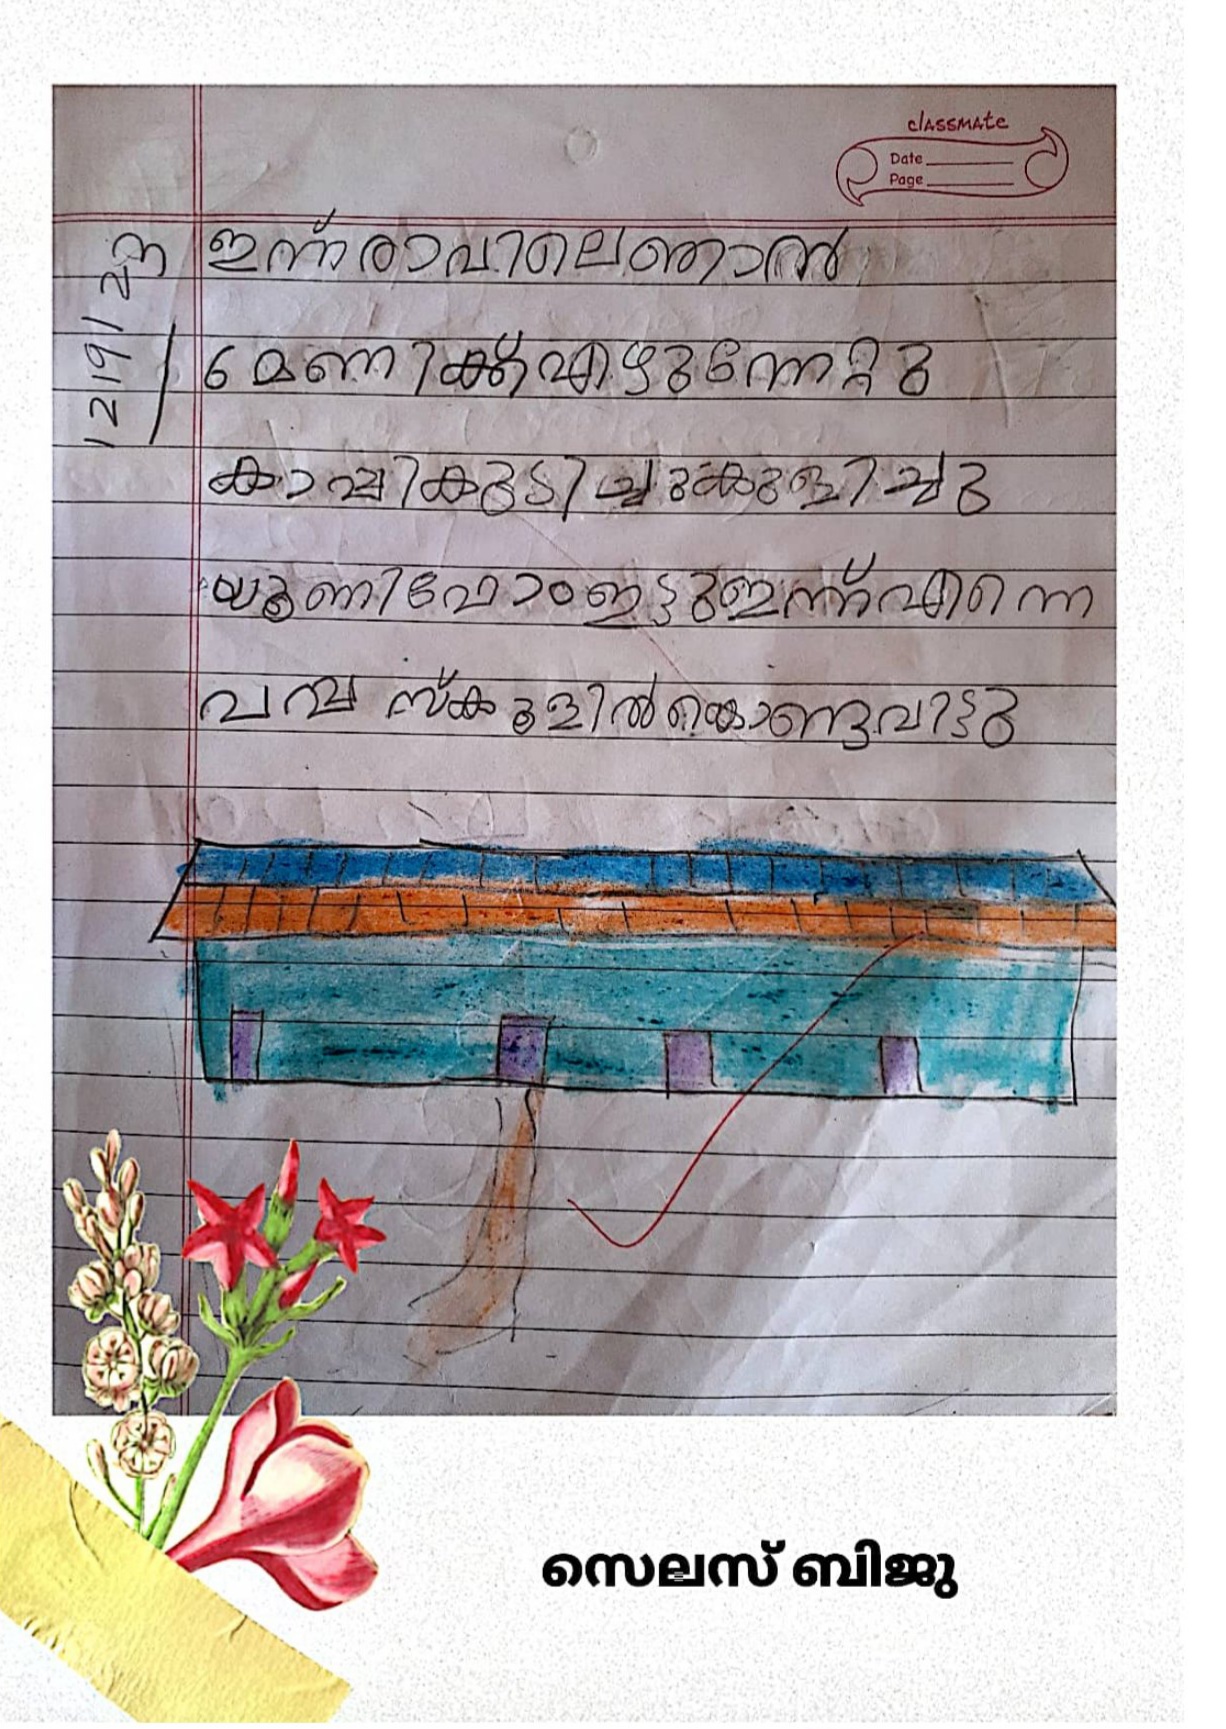 classmate
Date
Page
12/9/23
ഇന്ന് രാവിലെ ഞാൻ
6 മണിക്ക് എഴുന്നേറ്റു
കാപ്പി കുടിച്ചു കുളിച്ചു
യുണിഫോം ഇട്ടു ഇന്ന് എന്നെ
പപ്പ സ്കുളിൽ കൊണ്ടുവിട്ടു
സെലസ് ബിജു